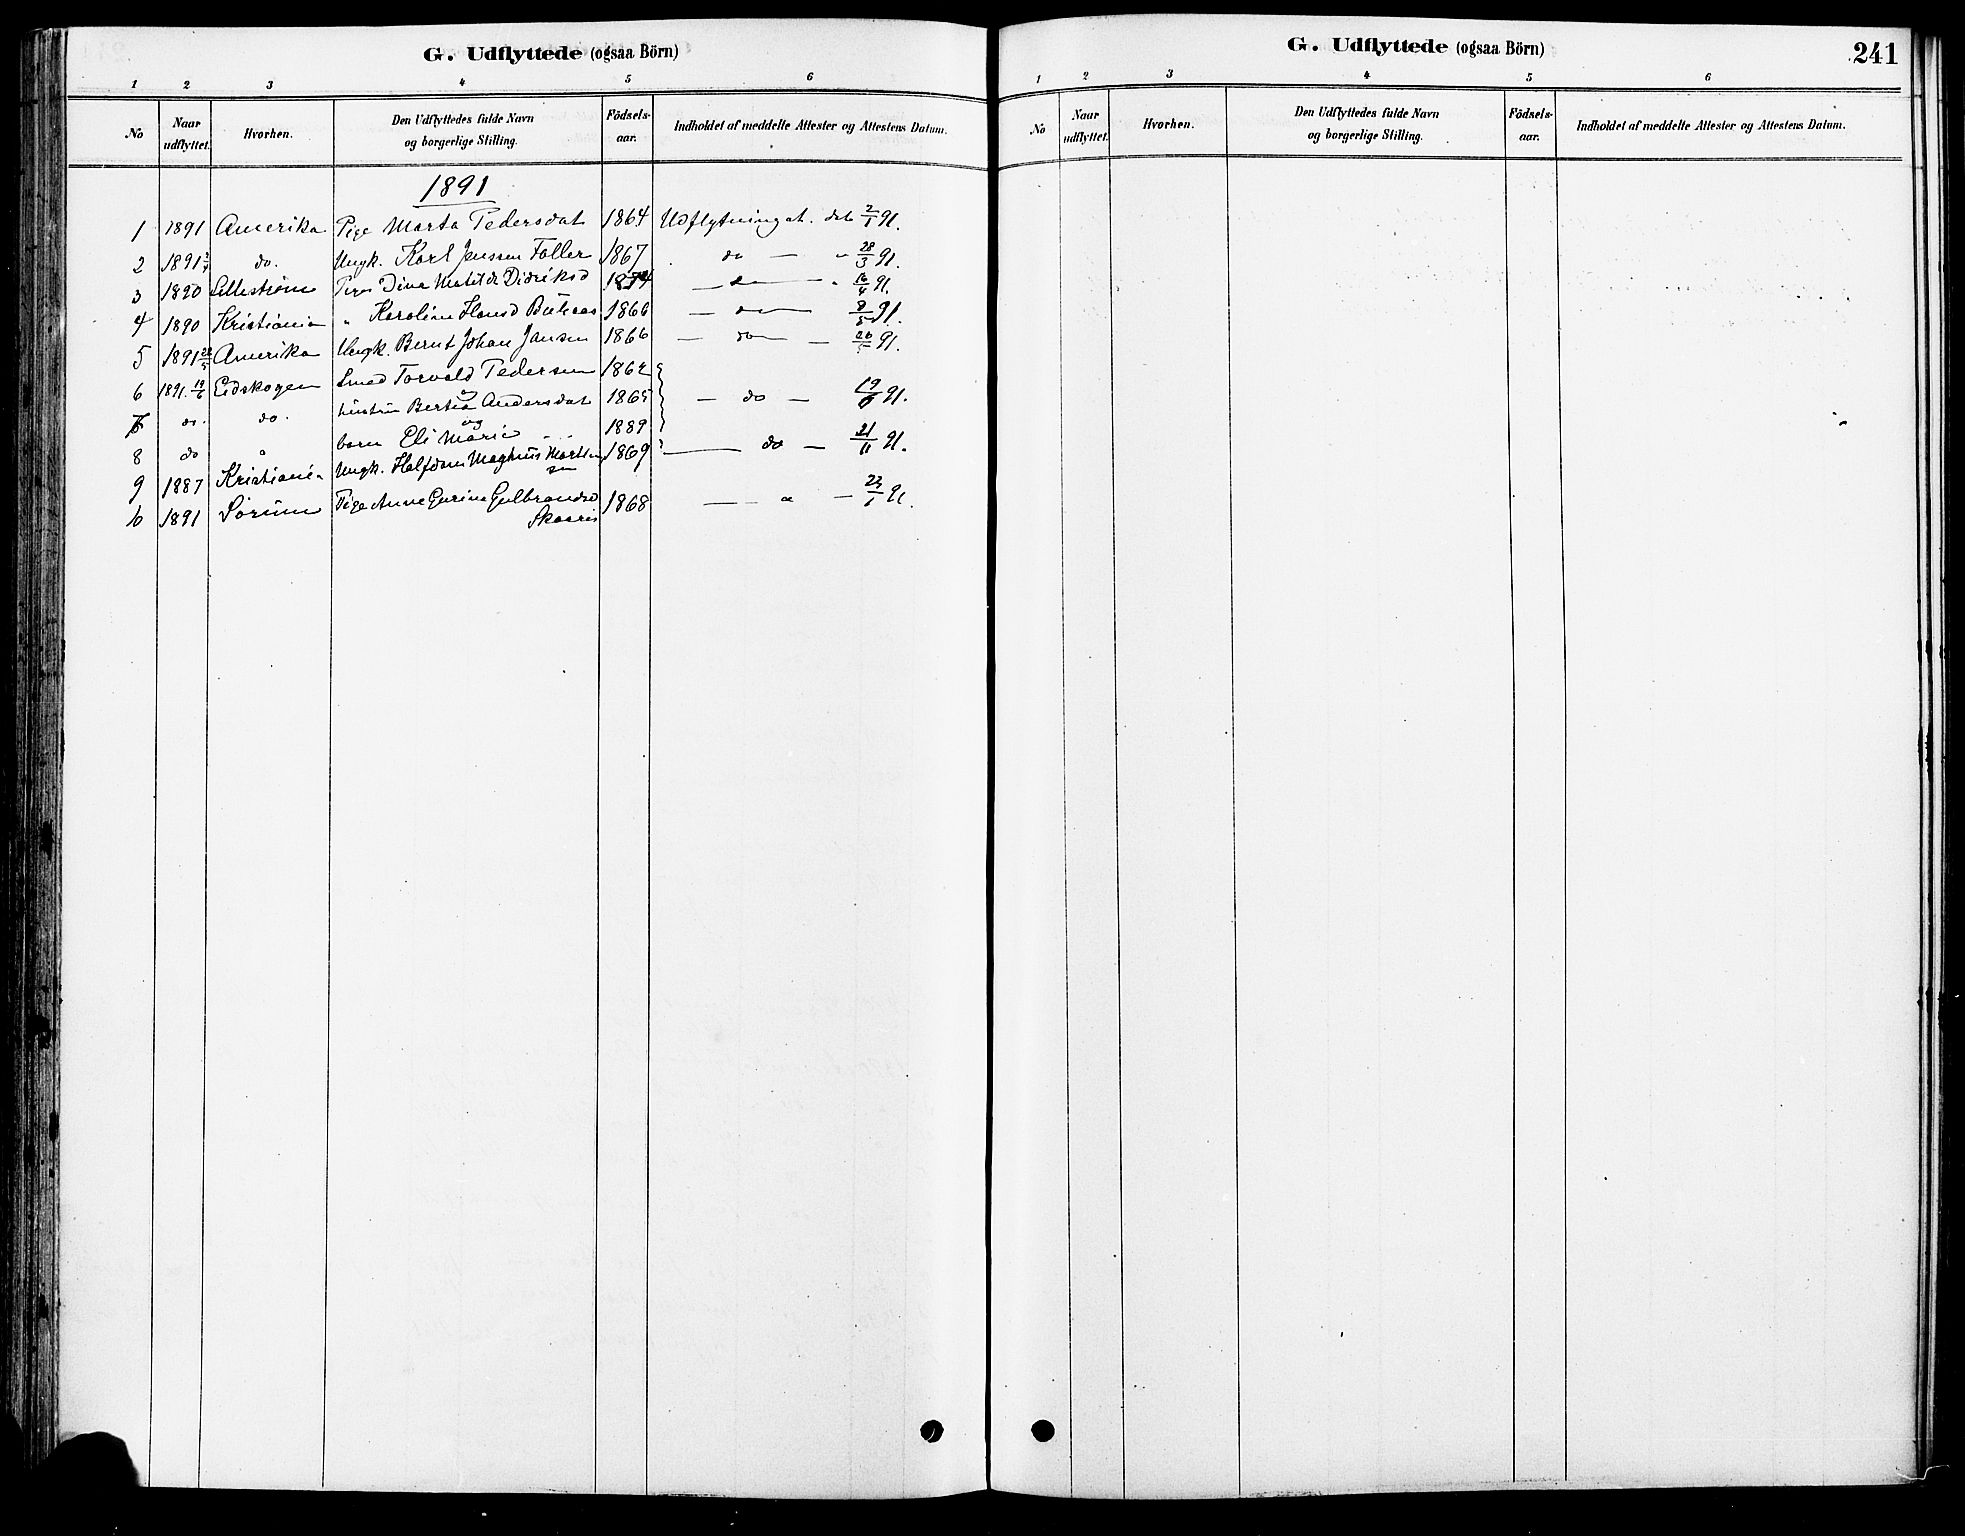 G. Udflyttede (ogsaa Börn)
1 2 3 4 5 6
No Naar udflyttet. Hvorhen. Den Udflyttedes fulde Navn og borgerlige Stilling. Födsels-aar. Indholdet af meddelte Attester og Attestens Datum.
1891
1 1891 Amerika Pige Marta Pedersdat 1864 Udflytningsat. dat 2/1 91.
2 1891 do. Ungk. Karl Jenssen Faller 1867 do — " 28/3 91.
3 1890 Lillestrøm Pige Dina Matilde Didriksd — do — " 16/4 91.
4 1890 Kristiania " Karoline Hansd 1866 — do — 8/5 91.
5 1891 Amerika Ungk. Bernt Johan Jansen 1866 — do — 91.
6 1891. 19/6 Eidskogen Smed Torvald Pedersen 1862
do. do. hustru Bertea Andersdat 1865 — do — 19/6 91.
og
8 do " barn Eli Marie 1889
9 1887 Kristiania Ungk. Halfdan Magnus Martinsen 1869 — do — 21/11 91.
1891 Sørum Pige Anne Gurine Gulbrandsd 1868 — " — 91.
G. Udflyttede (ogsaa Börn)
241
1 2 3 4 5 6
No Naar udflyttet. Hvorhen. Den Udflyttedes fulde Navn og borgerlige Stilling. Födsels-aar. Indholdet af meddelte Attester og Attestens Datum.